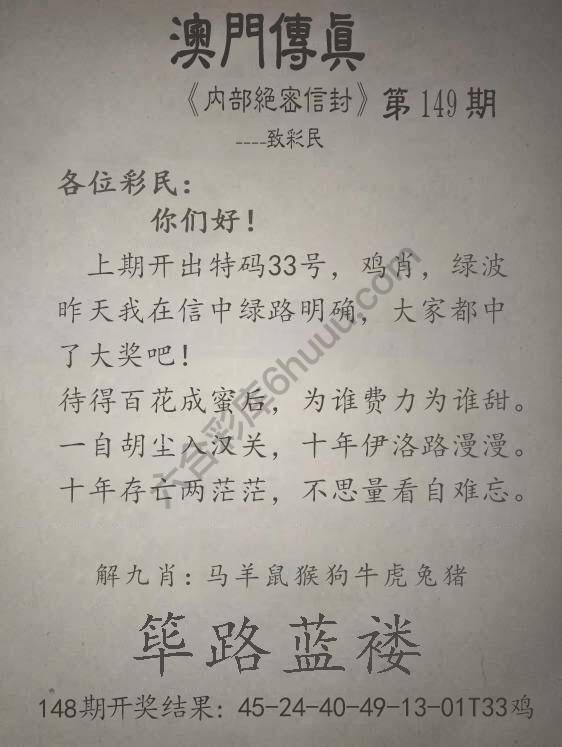 澳門傳眞
《内部絕密信封》第149期
----致彩民
各位彩民：
你们好！
上期开出特码33号，鸡肖，绿波
昨天我在信中绿路明确，大家都中
了大奖吧！
待得百花成蜜后，为谁费力为谁甜。
一自胡尘入汉关，十年伊洛路漫漫。
十年存亡两茫茫，不思量看自难忘。
解九肖：马羊鼠猴狗牛虎兔猪
筚路蓝褛
148期开奖结果：45-24-40-49-13-01T33鸡
六合彩库6huuu.com